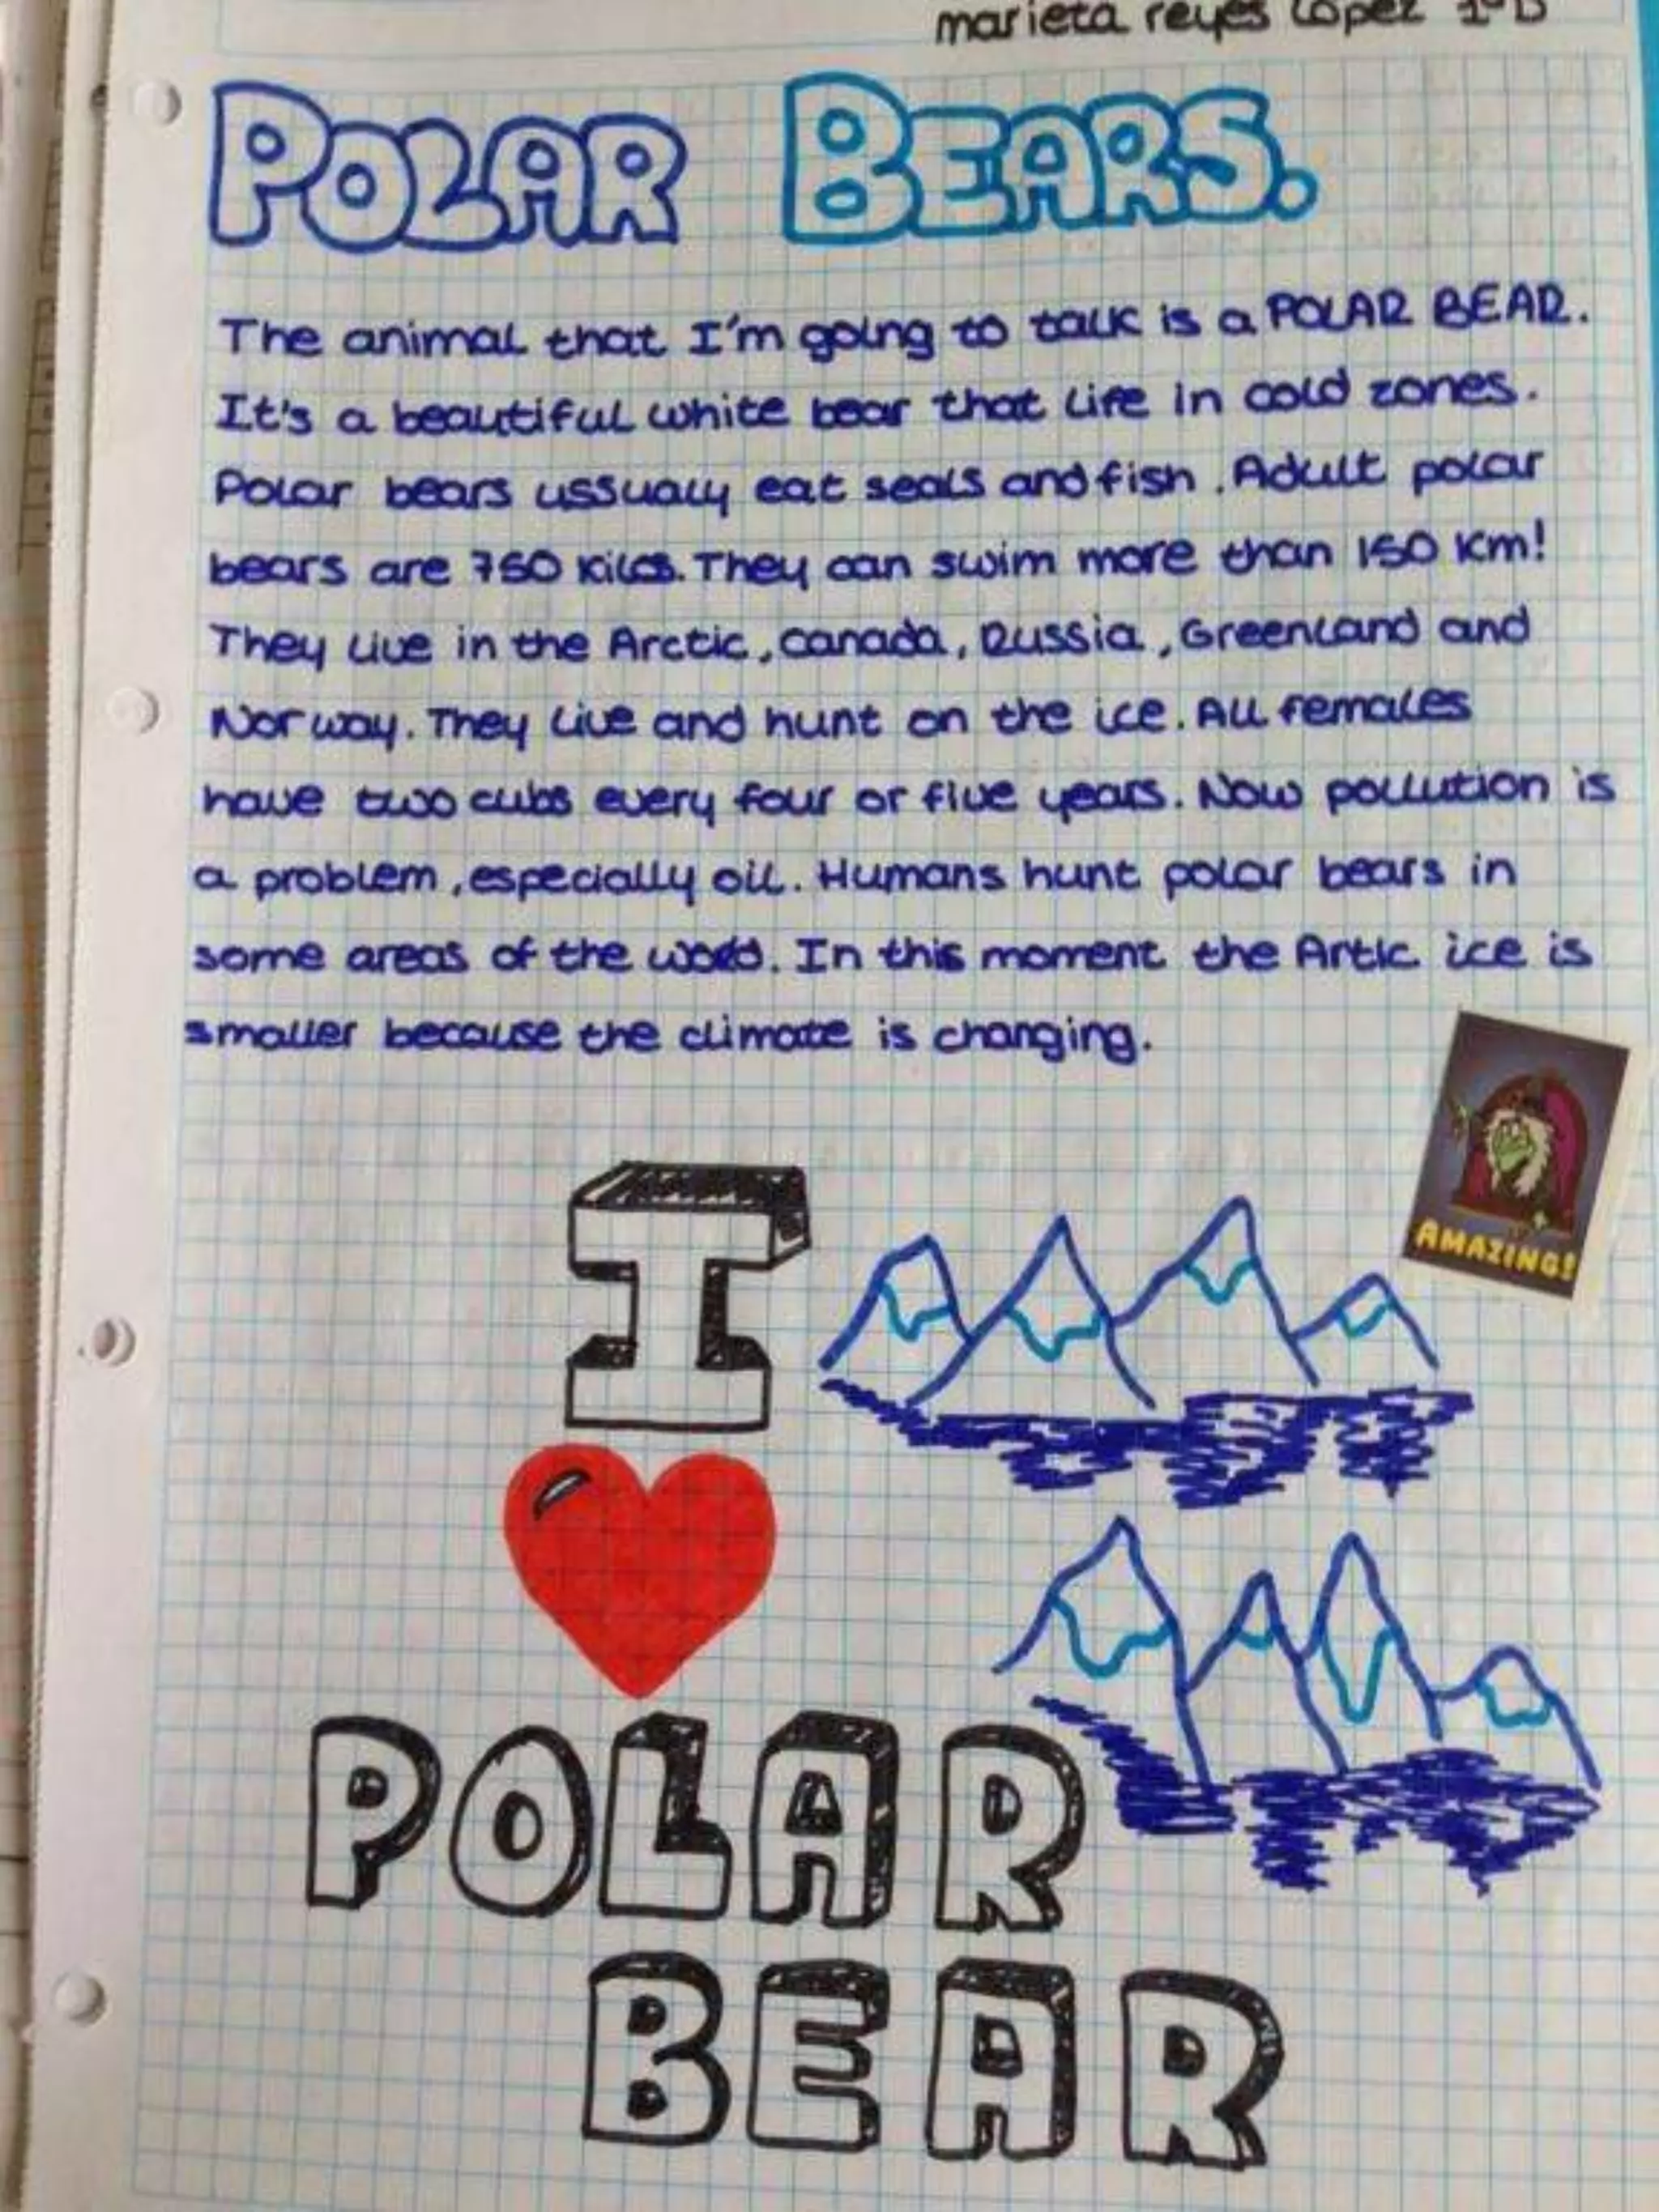 marieta reyes López 1ºD
POLAR BEARS.
The animal that I'm going to talk is a POLAR BEAR.
It's a beautiful white bear that life in cold zones.
Polar bears ussualy eat seals and fish. Adult polar
bears are 750 kilos. They can swim more than 150 Km!
They live in the Arctic, Canada, Russia, Greenland and
Norway. They live and hunt on the ice. All females
have two cubs every four or five years. Now pollution is
a problem, especially oil. Humans hunt polar bears in
some areas of the world. In this moment the Artic ice is
smaller because the climate is changing.
AMAZING!
I
POLAR
BEAR